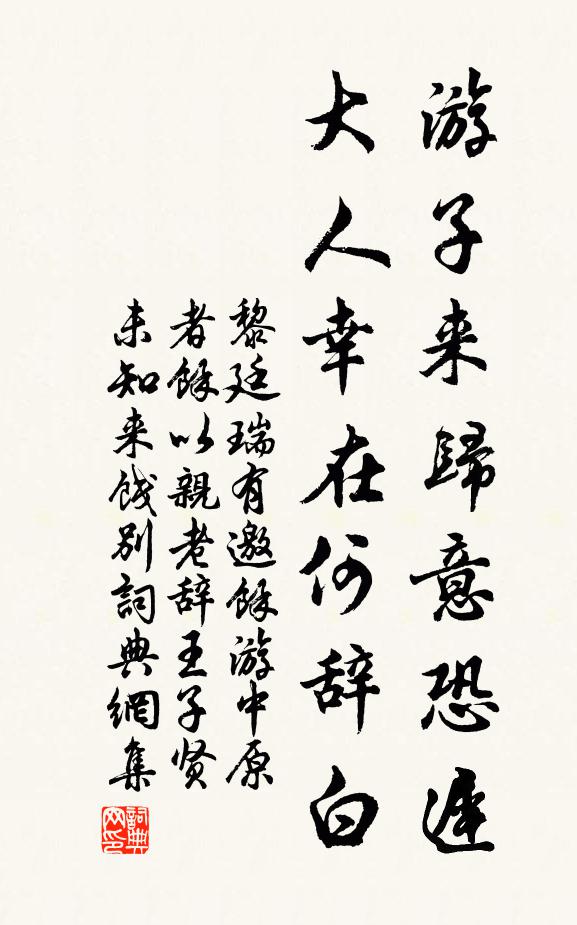 游子来歸意恐遲
大人幸在何辞白
黎廷瑞有邀餘游中原
者餘以親老辞王子贤
未知来餞別詞典網集
詞典
网印